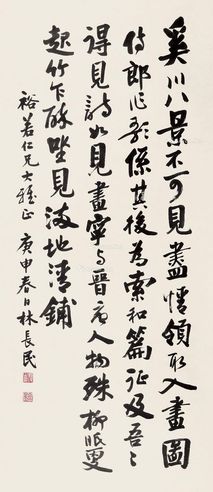 奚川八景不可見盡情領取入畫圖
侍郎作歌係其後為索和篇征及吾吾
得見詩如見畫寧與晉唐人物殊柳眠更
起竹乍酥坐見滿地清鋪
裕若仁兄大雅正 庚申春日林長民